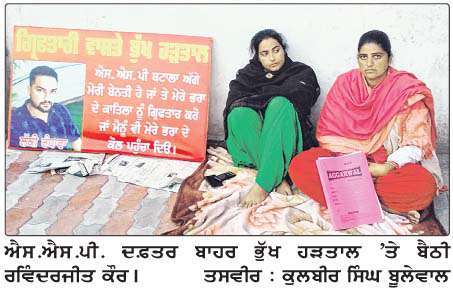 ਗ੍ਰਿਫਤਾਰੀ ਵਾਸਤੇ ਭੁੱਖ ਹੜਤਾਲ
ਐਸ.ਐਸ.ਪੀ ਬਟਾਲਾ ਅੱਗੇ
ਮੇਰੀ ਬੇਨਤੀ ਹੈ ਜਾਂ ਤੇ ਮੇਰੇ ਭਰਾ
ਦੇ ਕਾਤਿਲਾ ਨੂੰ ਗ੍ਰਿਫਤਾਰ ਕਰੋ
ਜਾਂ ਮੈਨੂੰ ਵੀ ਮੇਰੇ ਭਰਾ ਦੇ
ਕੋਲ ਪਹੁੰਚਾ ਦਿਓ।
AGGARWAL
ਐਸ.ਐਸ.ਪੀ. ਦਫ਼ਤਰ ਬਾਹਰ ਭੁੱਖ ਹੜਤਾਲ 'ਤੇ ਬੈਠੀ
ਰਵਿੰਦਰਜੀਤ ਕੌਰ। ਤਸਵੀਰ : ਕੁਲਬੀਰ ਸਿੰਘ ਬੂਲੇਵਾਲ